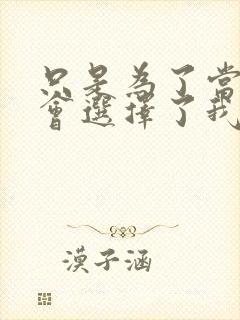 只是為了當
會選擇了我
漠子涵